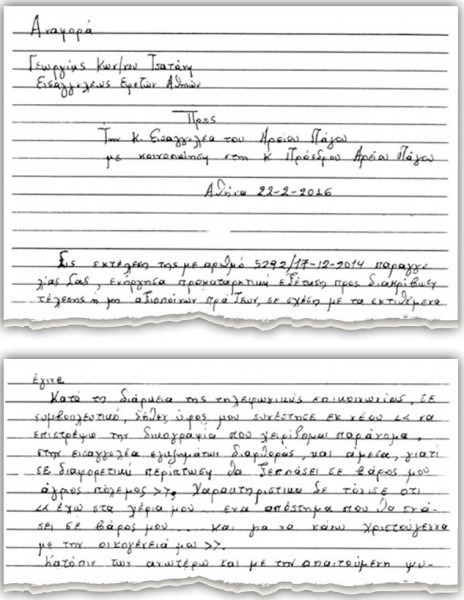 Αναφορά
Γεωργίας Κων/νου Τσατάνη
Εισαγγελέως Εφετών Αθηνών
Προς
Την κ. Εισαγγελέα του Αρείου Πάγου
με κοινοποίηση στη κ Πρόεδρο Αρείου Πάγου
Αθήνα 22-2-2016
Εις εκτέλεση της με αριθμό 5292/17-12-2014 παραγγε
λίας Σας, ενήργησα προκαταρκτική εξέταση προς διακρίβωση
τέλεσης ή μη αξιοποίνων πράξεων, σε σχέση με τα εκτιθέμενα
έγινε
Κατά τη διάρκεια της τηλεφωνικής επικοινωνίας, σε
συμβουλευτικό, δήθεν, ύφος μου συνέστησε εκ νέου << να
επιστρέψω την δικογραφία που χειρίζομαι παράνομα,
στην εισαγγελέα εγκλημάτων διαφθοράς, και άμεσα, γιατί
σε διαφορετική περίπτωση θα ξεσπάσει σε βάρος μου
άγριος πόλεμος >>, Χαρακτηριστικά δε τόνισε οτι
<< έχω στα χέρια μου ... ένα απόστημα που θα σπά-
σει σε βάρος μου ... και για να κάνω Χριστούγεννα
με την οικογένειά μου >>.
Κατόπιν των ανωτέρω και με την απαιτούμενη ψυ-